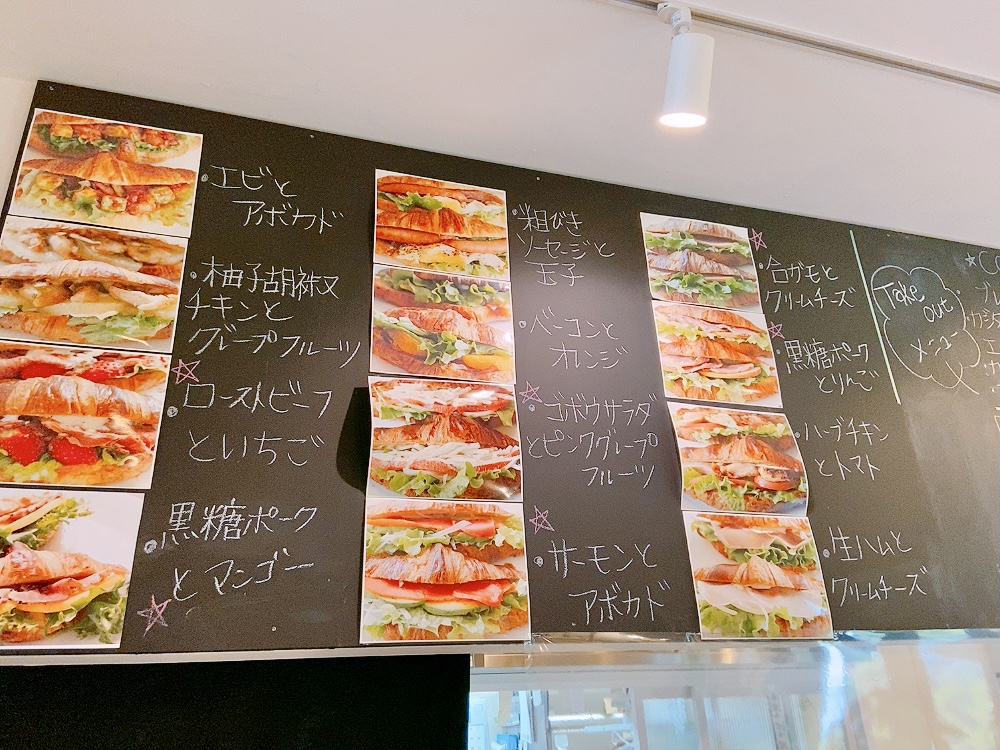 ・エビと
アボカド
・柚子胡椒
チキンと
グレープフルーツ
・ローストビーフ
といちご
・黒糖ポーク
とマンゴー
・粗びき
ソーセージと
玉子
・ベーコンと
オレンジ
・ゴボウサラダ
とピンクグレープ
フルーツ
・サーモンと
アボカド
・合ガモと
クリームチーズ
・黒糖ポーク
とりんご
・ハーブチキン
とトマト
・生ハムと
クリームチーズ
Take
out
メニュー